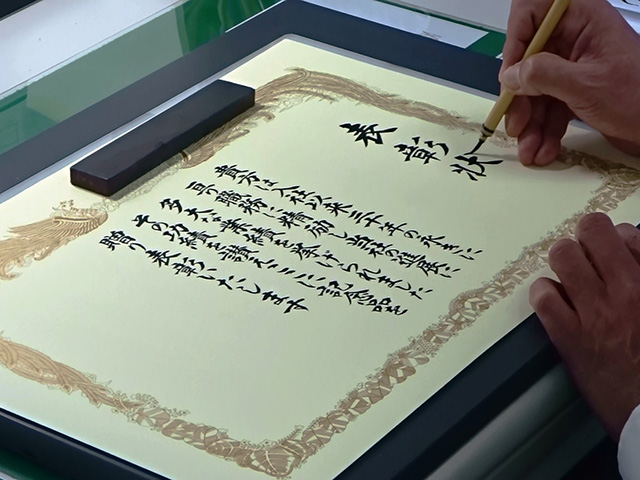 表彰状
貴方は入社以来三十年の永きに
亘り職務に精励し当社の進展に
多大な業績を挙げられました
その功績を讃えここに記念品を
贈り表彰いたします